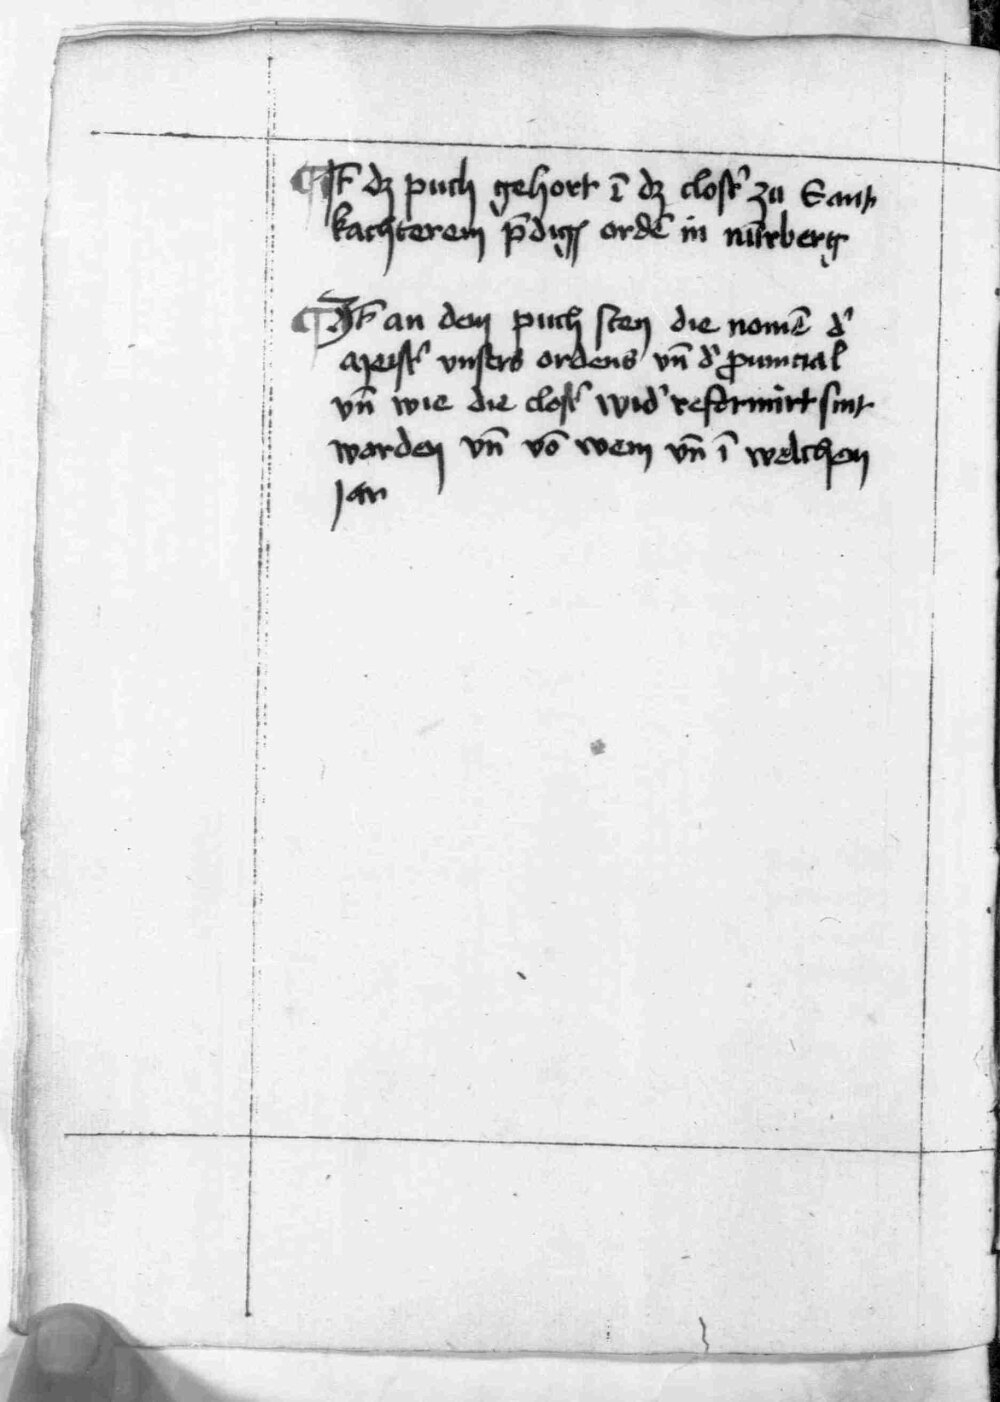 ¶ It̄ dz puch gehort ī dz clost' zu Sant
kachterein p̄diğ ordē in nürberg
¶ It̄ an dem puch sten die nomē d'
meist' vnsers ordens vn̄ d' ꝓuincial
vn̄ wie die clost' wid' reformirt sint
worden vn̄ vō wem vn̄ ī welchen
jar